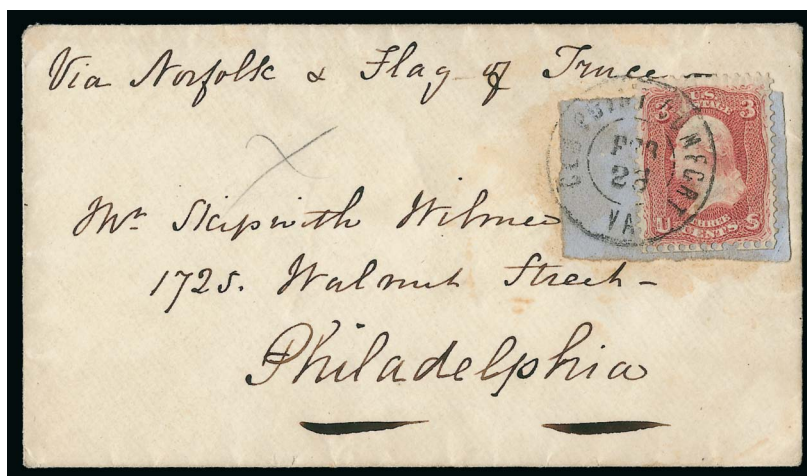 Via Norfolk & Flag of Truce
U.S.
POSTAGE
3 3
OLD POINT COMFORT
23
VA
U THREE S
CENTS
Mr Skipwith Wilmer
1725. Walnut Street
Philadelphia